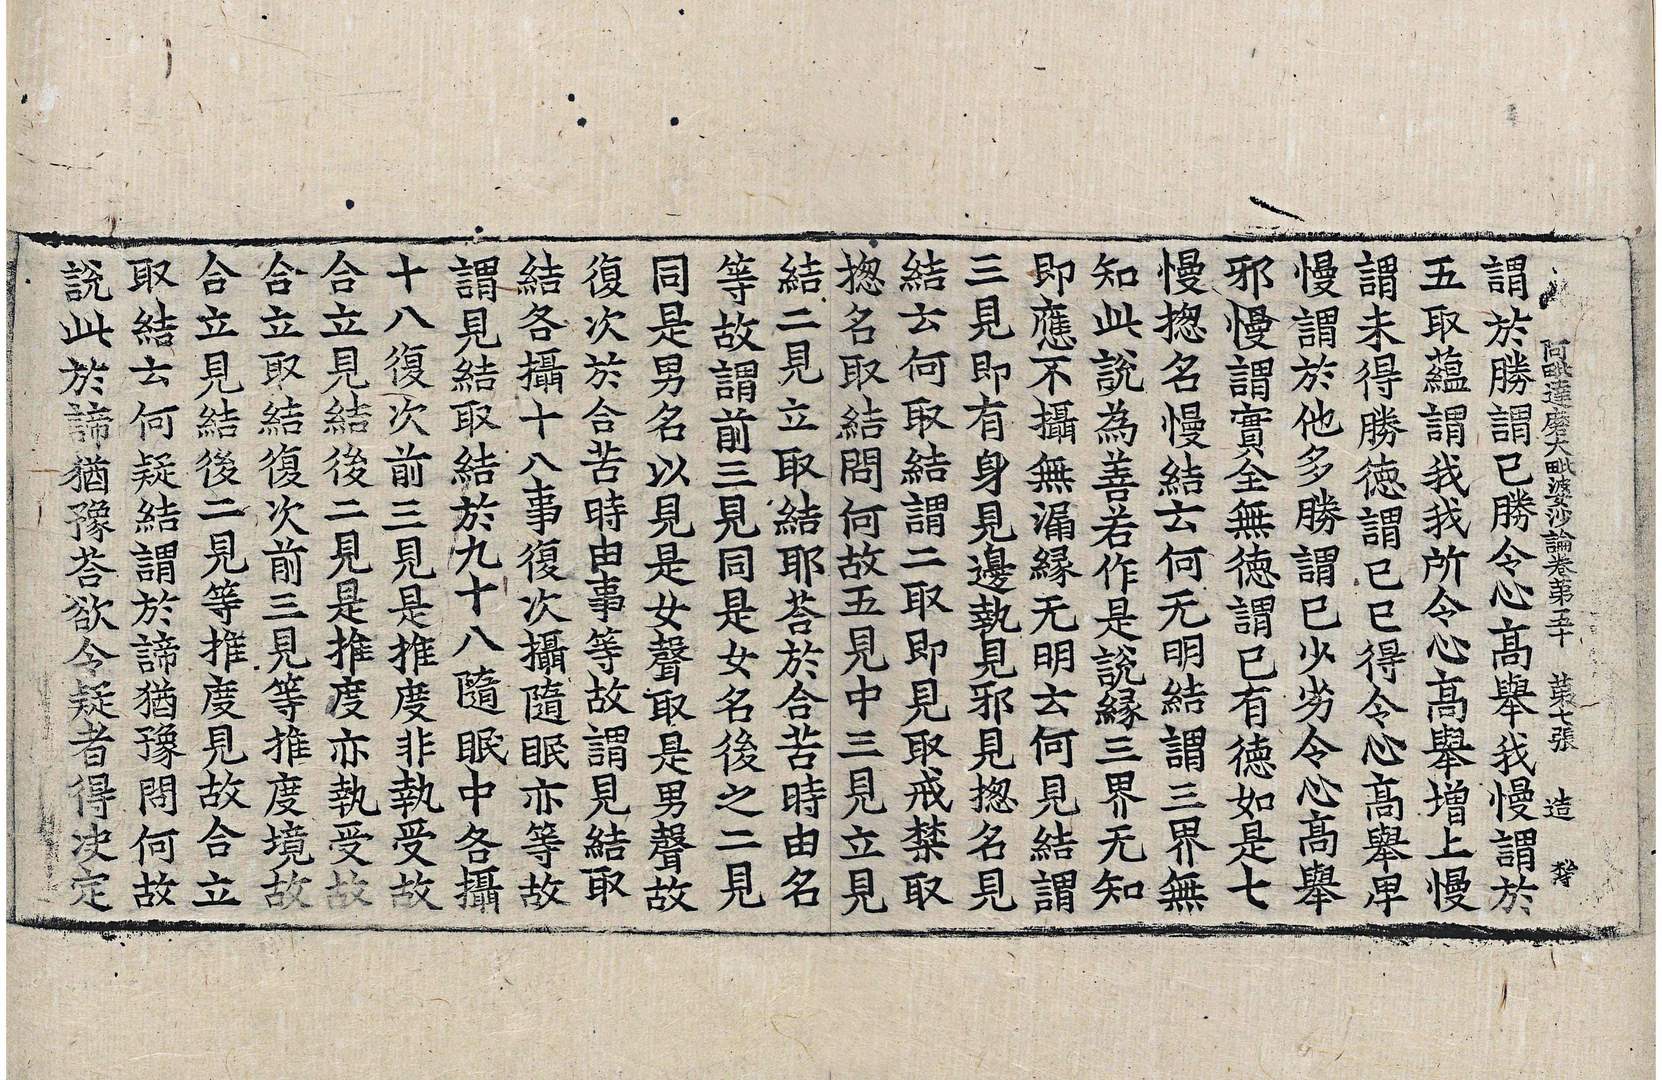 阿毗達磨大毗婆沙論卷苐五十 苐七張 造
謂於勝謂已勝令心髙舉我慢謂於
五取蘊謂我我所令心髙舉增上慢
謂未得勝徳謂已已得令心髙舉卑
慢謂於他多勝謂已少劣令心髙舉
邪慢謂實全無徳謂已有徳如是七
慢揔名慢結云何无明結謂三界無
知此說為善若作是說縁三界无知
即應不攝無漏縁无明云何見結謂
三見即有身見邊執見邪見揔名見
結云何取結謂二取即見取戒禁取
揔名取結問何故五見中三見立見
結二見立取結耶荅於合苦時由名
等故謂前三見同是女名後之二見
同是男名以見是女聲取是男聲故
復次於合苦時由事等故謂見結取
結各攝十八事復次攝隨眠亦等故
謂見結取結於九十八隨眠中各攝
十八復次前三見是推度非執受故
合立見結後二見是推度亦執受故
合立取結復次前三見等推度境故
合立見結後二見等推度見故合立
取結云何疑結謂於諦猶豫問何故
說此於諦猶豫荅欲令疑者得决定